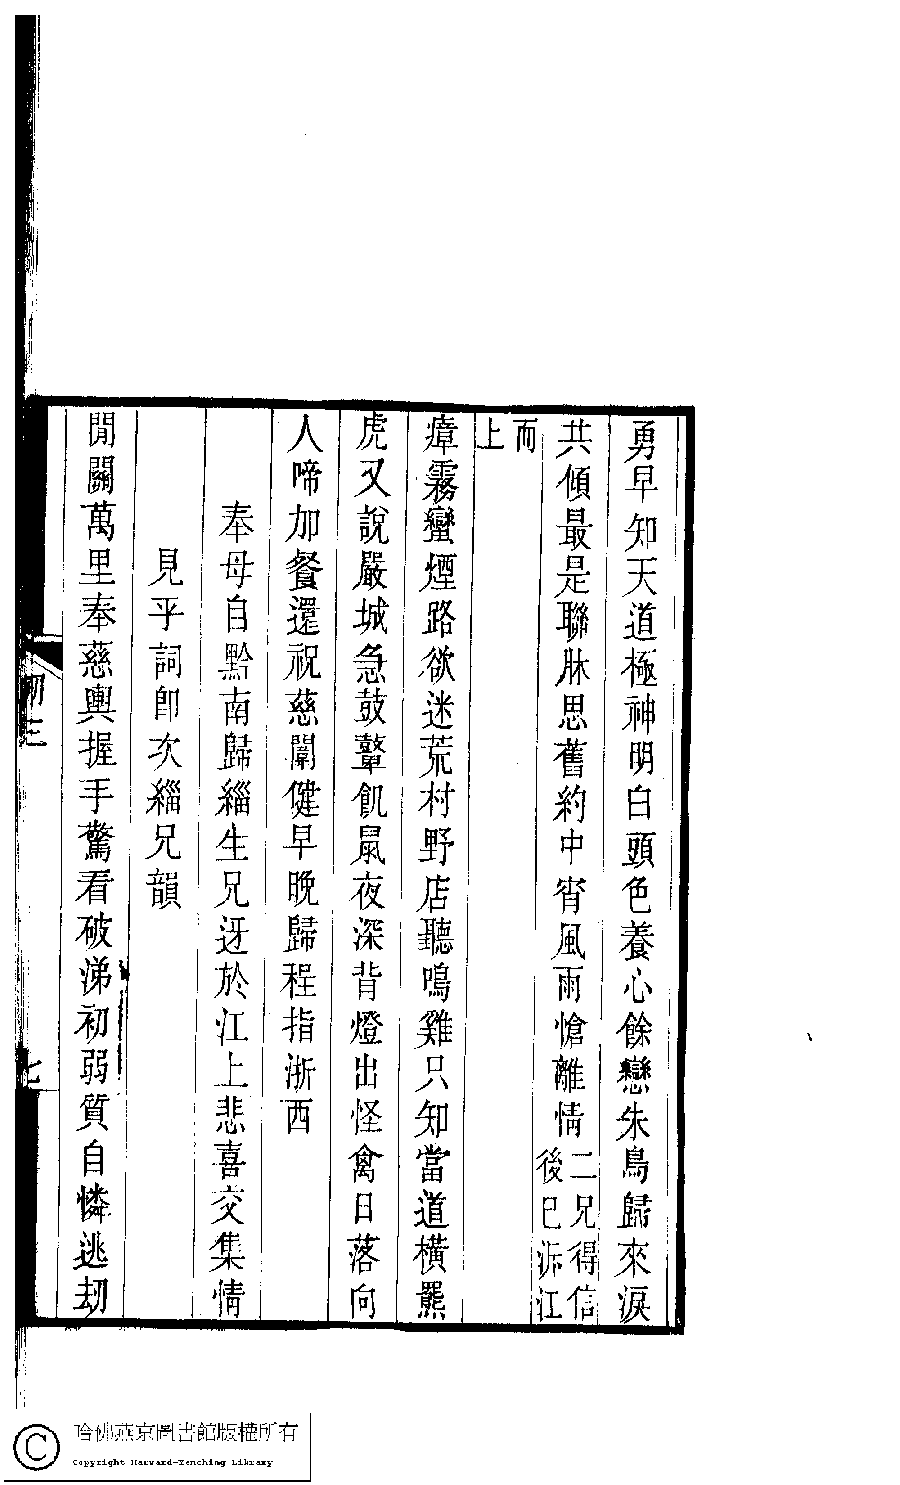 勇早知天道極神明白頭色養心餘戀朱鳥歸來淚
共傾最是聯牀思舊約中宵風雨愴離情二兄得信後已泝江
而上
瘴霧蠻煙路欲迷荒村野店聽鳴雞只知當道橫羆
虎又說嚴城急鼓鼙飢鼠夜深背燈出怪禽日落向
人啼加餐還祝慈闈健早晚歸程指浙西
奉母自黔南歸緇生兄迓於江上悲喜交集情
見乎詞卽次緇兄韻
閒關萬里奉慈輿握手驚看破涕初弱質自憐逃劫
七
哈佛燕京圖書館版權所有
Copyright Harvard-Yenching Library